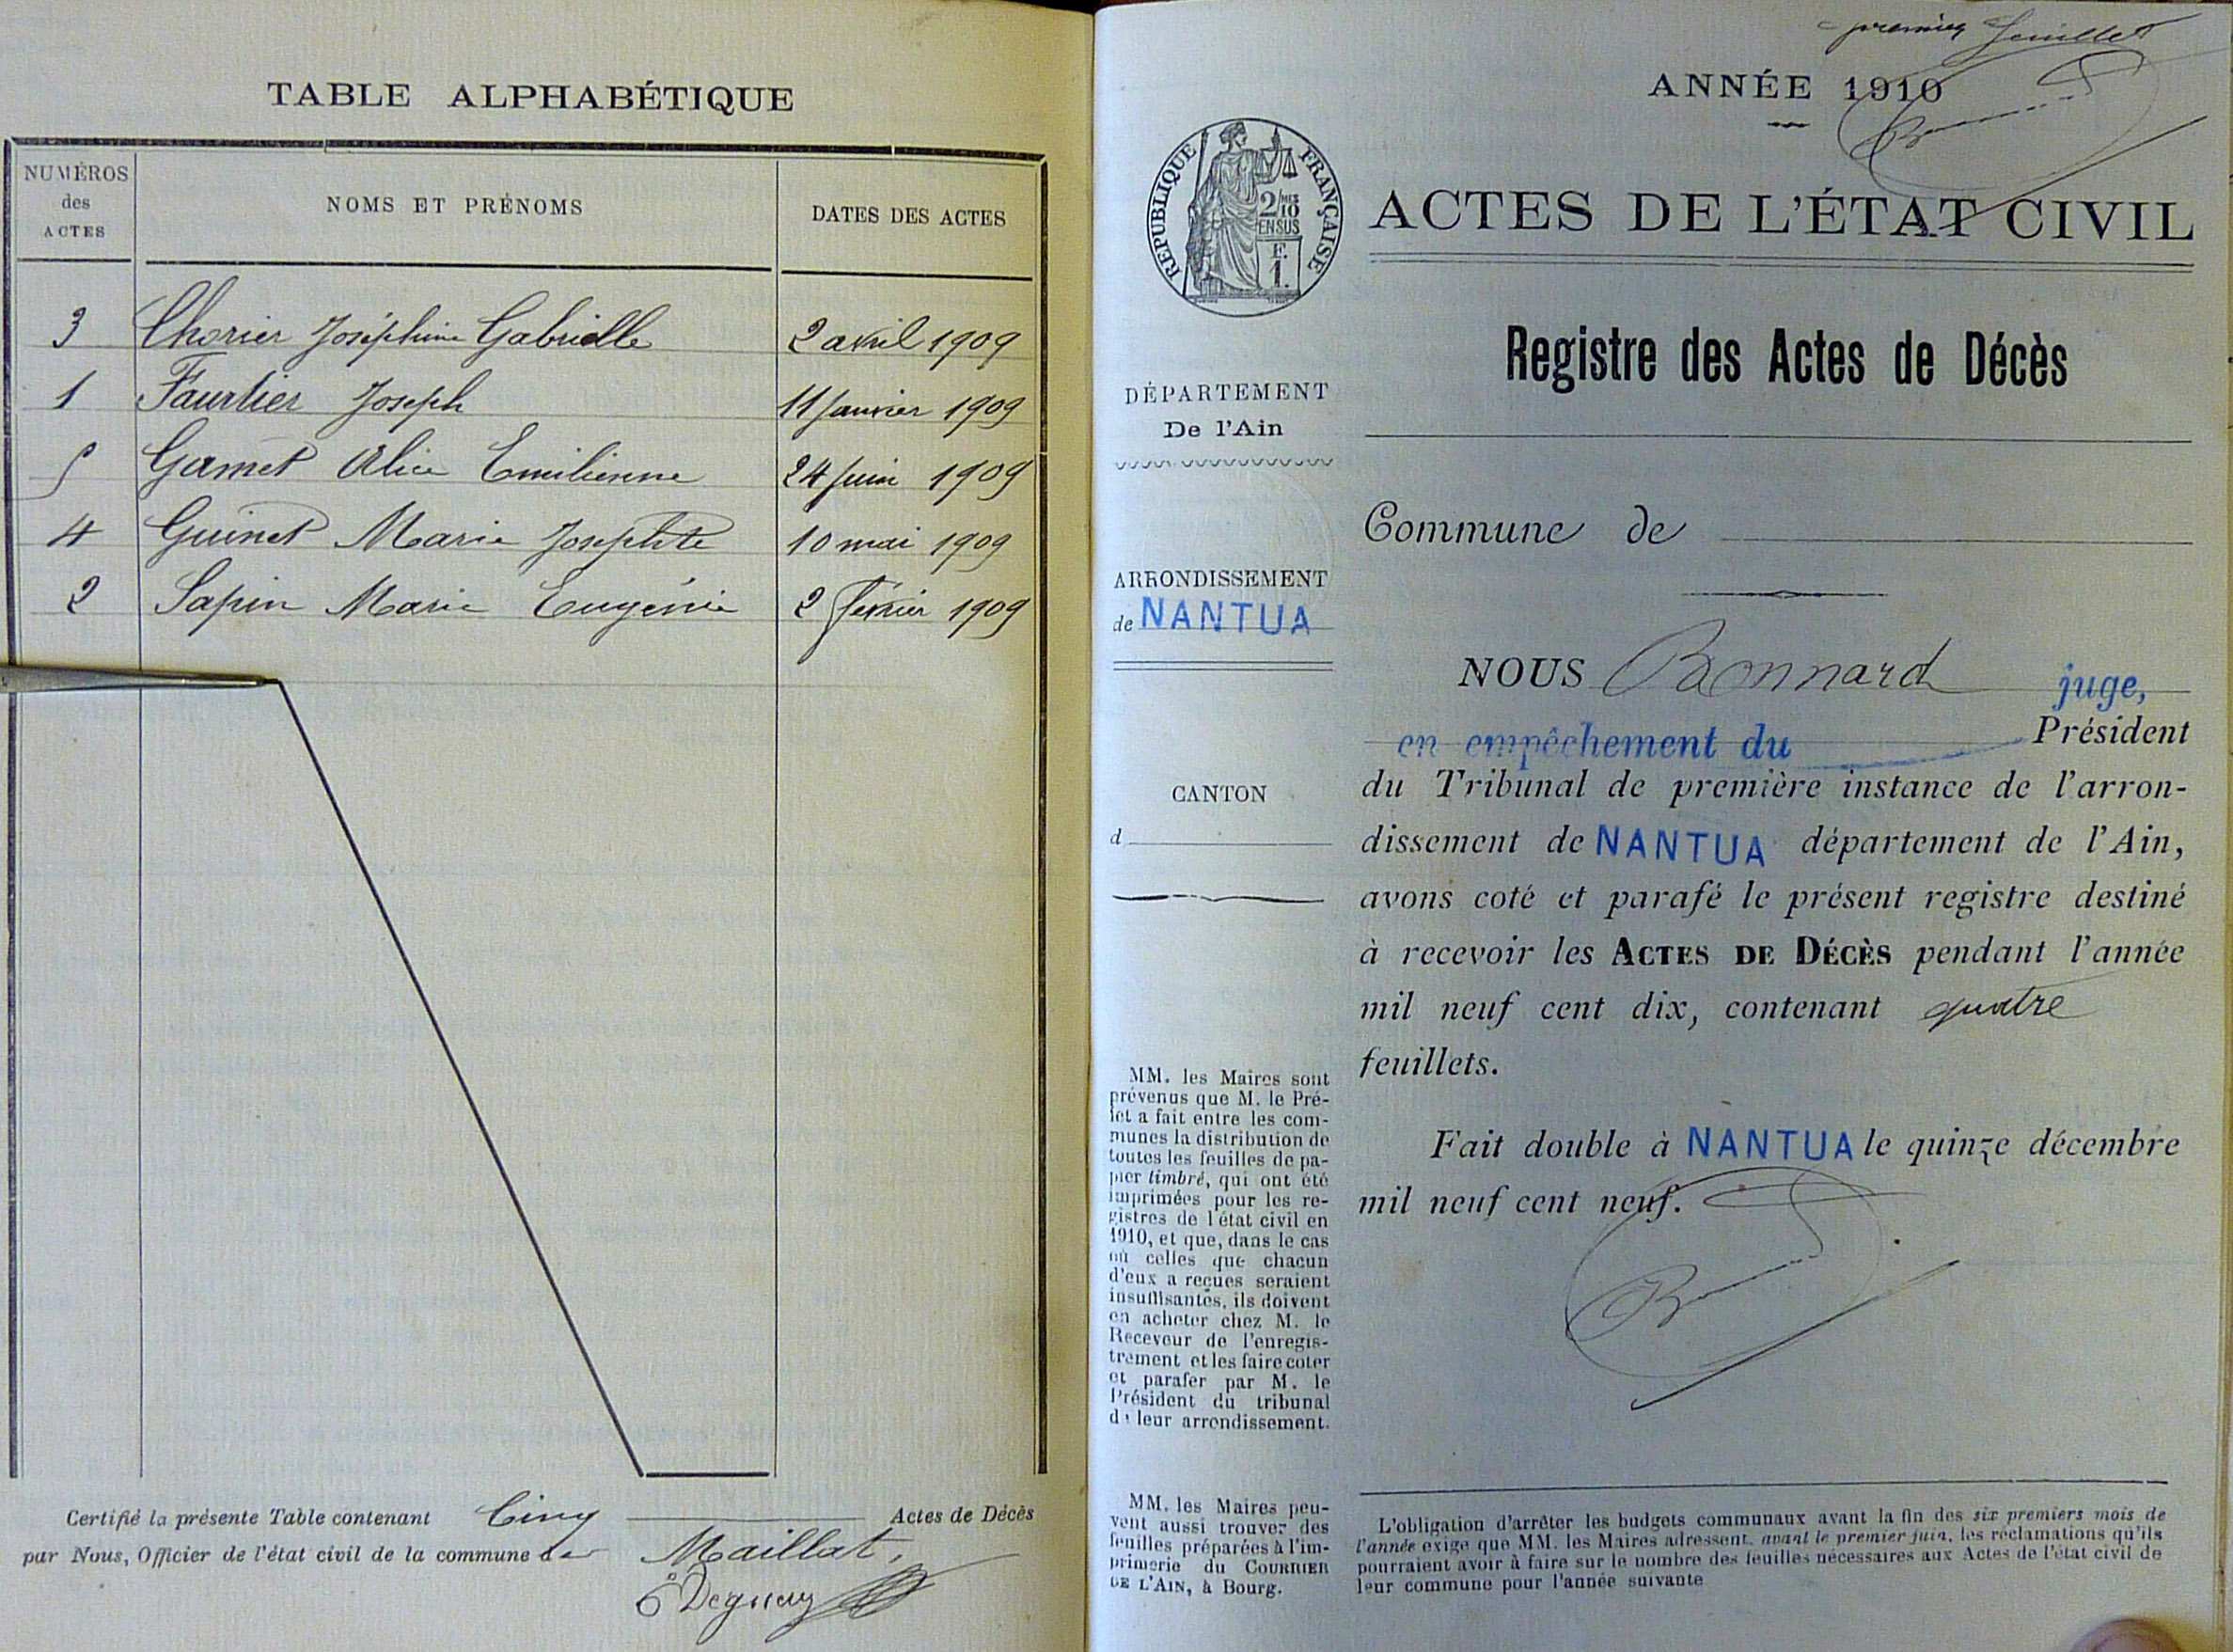 TABLE ALPHABÉTIQUE
NUMÉROS des ACTES NOMS ET PRÉNOMS DATES DES ACTES
3 Chorier Joséphine Gabrielle 2 avril 1909
1 Faurlier Joseph 11 Janvier 1909
5 Gamet Alice Emilienne 24 Juin 1909
4 Guinet Marie Josephte 10 mai 1909
2 Sapin Marie Eugénie 2 février 1909
Certifié la présente Table contenant Cinq Actes de Décès
par Nous, Officier de l'état civil de la commune de Maillat.
premier feuillet
ANNÉE 1910
RÉPUBLIQUE FRANÇAISE
2/10 MES
EN SUS
F.
1.
ACTES DE L'ÉTAT CIVIL
Registre des Actes de Décès
DÉPARTEMENT
De l'Ain
Commune de
ARRONDISSEMENT
de NANTUA
CANTON
d
NOUS Bonnard juge,
en empêchement du Président
du Tribunal de première instance de l'arron-
dissement de NANTUA département de l'Ain,
avons coté et parafé le présent registre destiné
à recevoir les ACTES DE DÉCÈS pendant l'année
mil neuf cent dix, contenant quatre
feuillets.
Fait double à NANTUA le quinze décembre
mil neuf cent neuf.
MM. les Maires sont
prévenus que M. le Pré-
fet a fait entre les com-
munes la distribution de
toutes les feuilles de pa-
pier timbré, qui ont été
imprimées pour les re-
gistres de l'état civil en
1910, et que, dans le cas
où celles que chacun
d'eux a reçues seraient
insuffisantes, ils doivent
en acheter chez M. le
Receveur de l'enregis-
trement et les faire coter
et parafer par M. le
Président du tribunal
de leur arrondissement.
MM. les Maires peu-
vent aussi trouver des
feuilles préparées à l'im-
primerie du COURRIER
DE L'AIN, à Bourg.
L'obligation d'arrêter les budgets communaux avant la fin des six premiers mois de
l'année exige que MM. les Maires adressent, avant le premier juin, les réclamations qu'ils
pourraient avoir à faire sur le nombre des feuilles nécessaires aux Actes de l'état civil de
leur commune pour l'année suivante